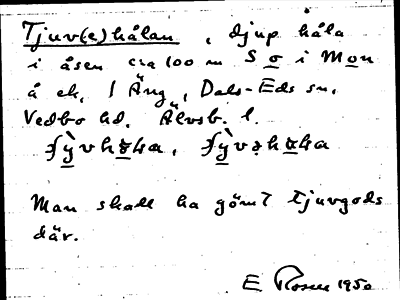 Tjuv(e)hålan, djup håla
i åsen cra 100 m S o i Mon
å ek. 1 Äng, Dals-Eds sn,
Vedbo hd. Älvsb. l.
Man skall ha gömt tjuvgods
där.
E Rosen 1950